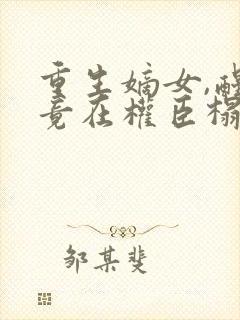 重生嫡女,醒
竟在权臣榻
邹某斐